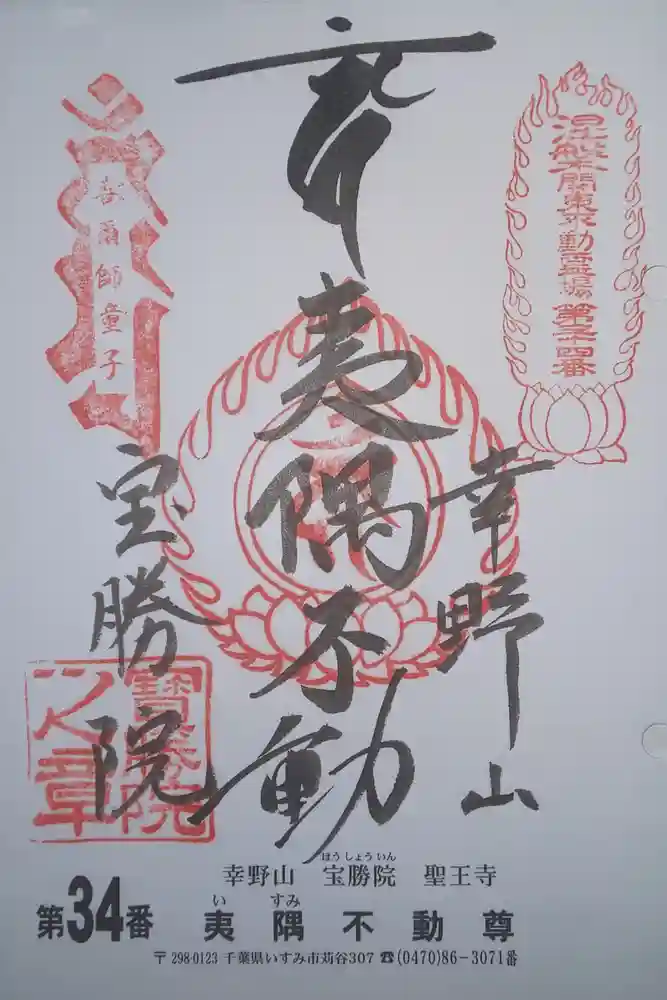 涅槃関東不動霊場第三十四番
幸野山
夷隅不動
善爾師童子
宝勝院
寳勝院之章
幸野山 宝勝院 聖王寺
ほうしょういん
第34番 夷隅不動尊
い すみ
〒298-0123 千葉県いすみ市苅谷307 ☎(0470)86-3071番